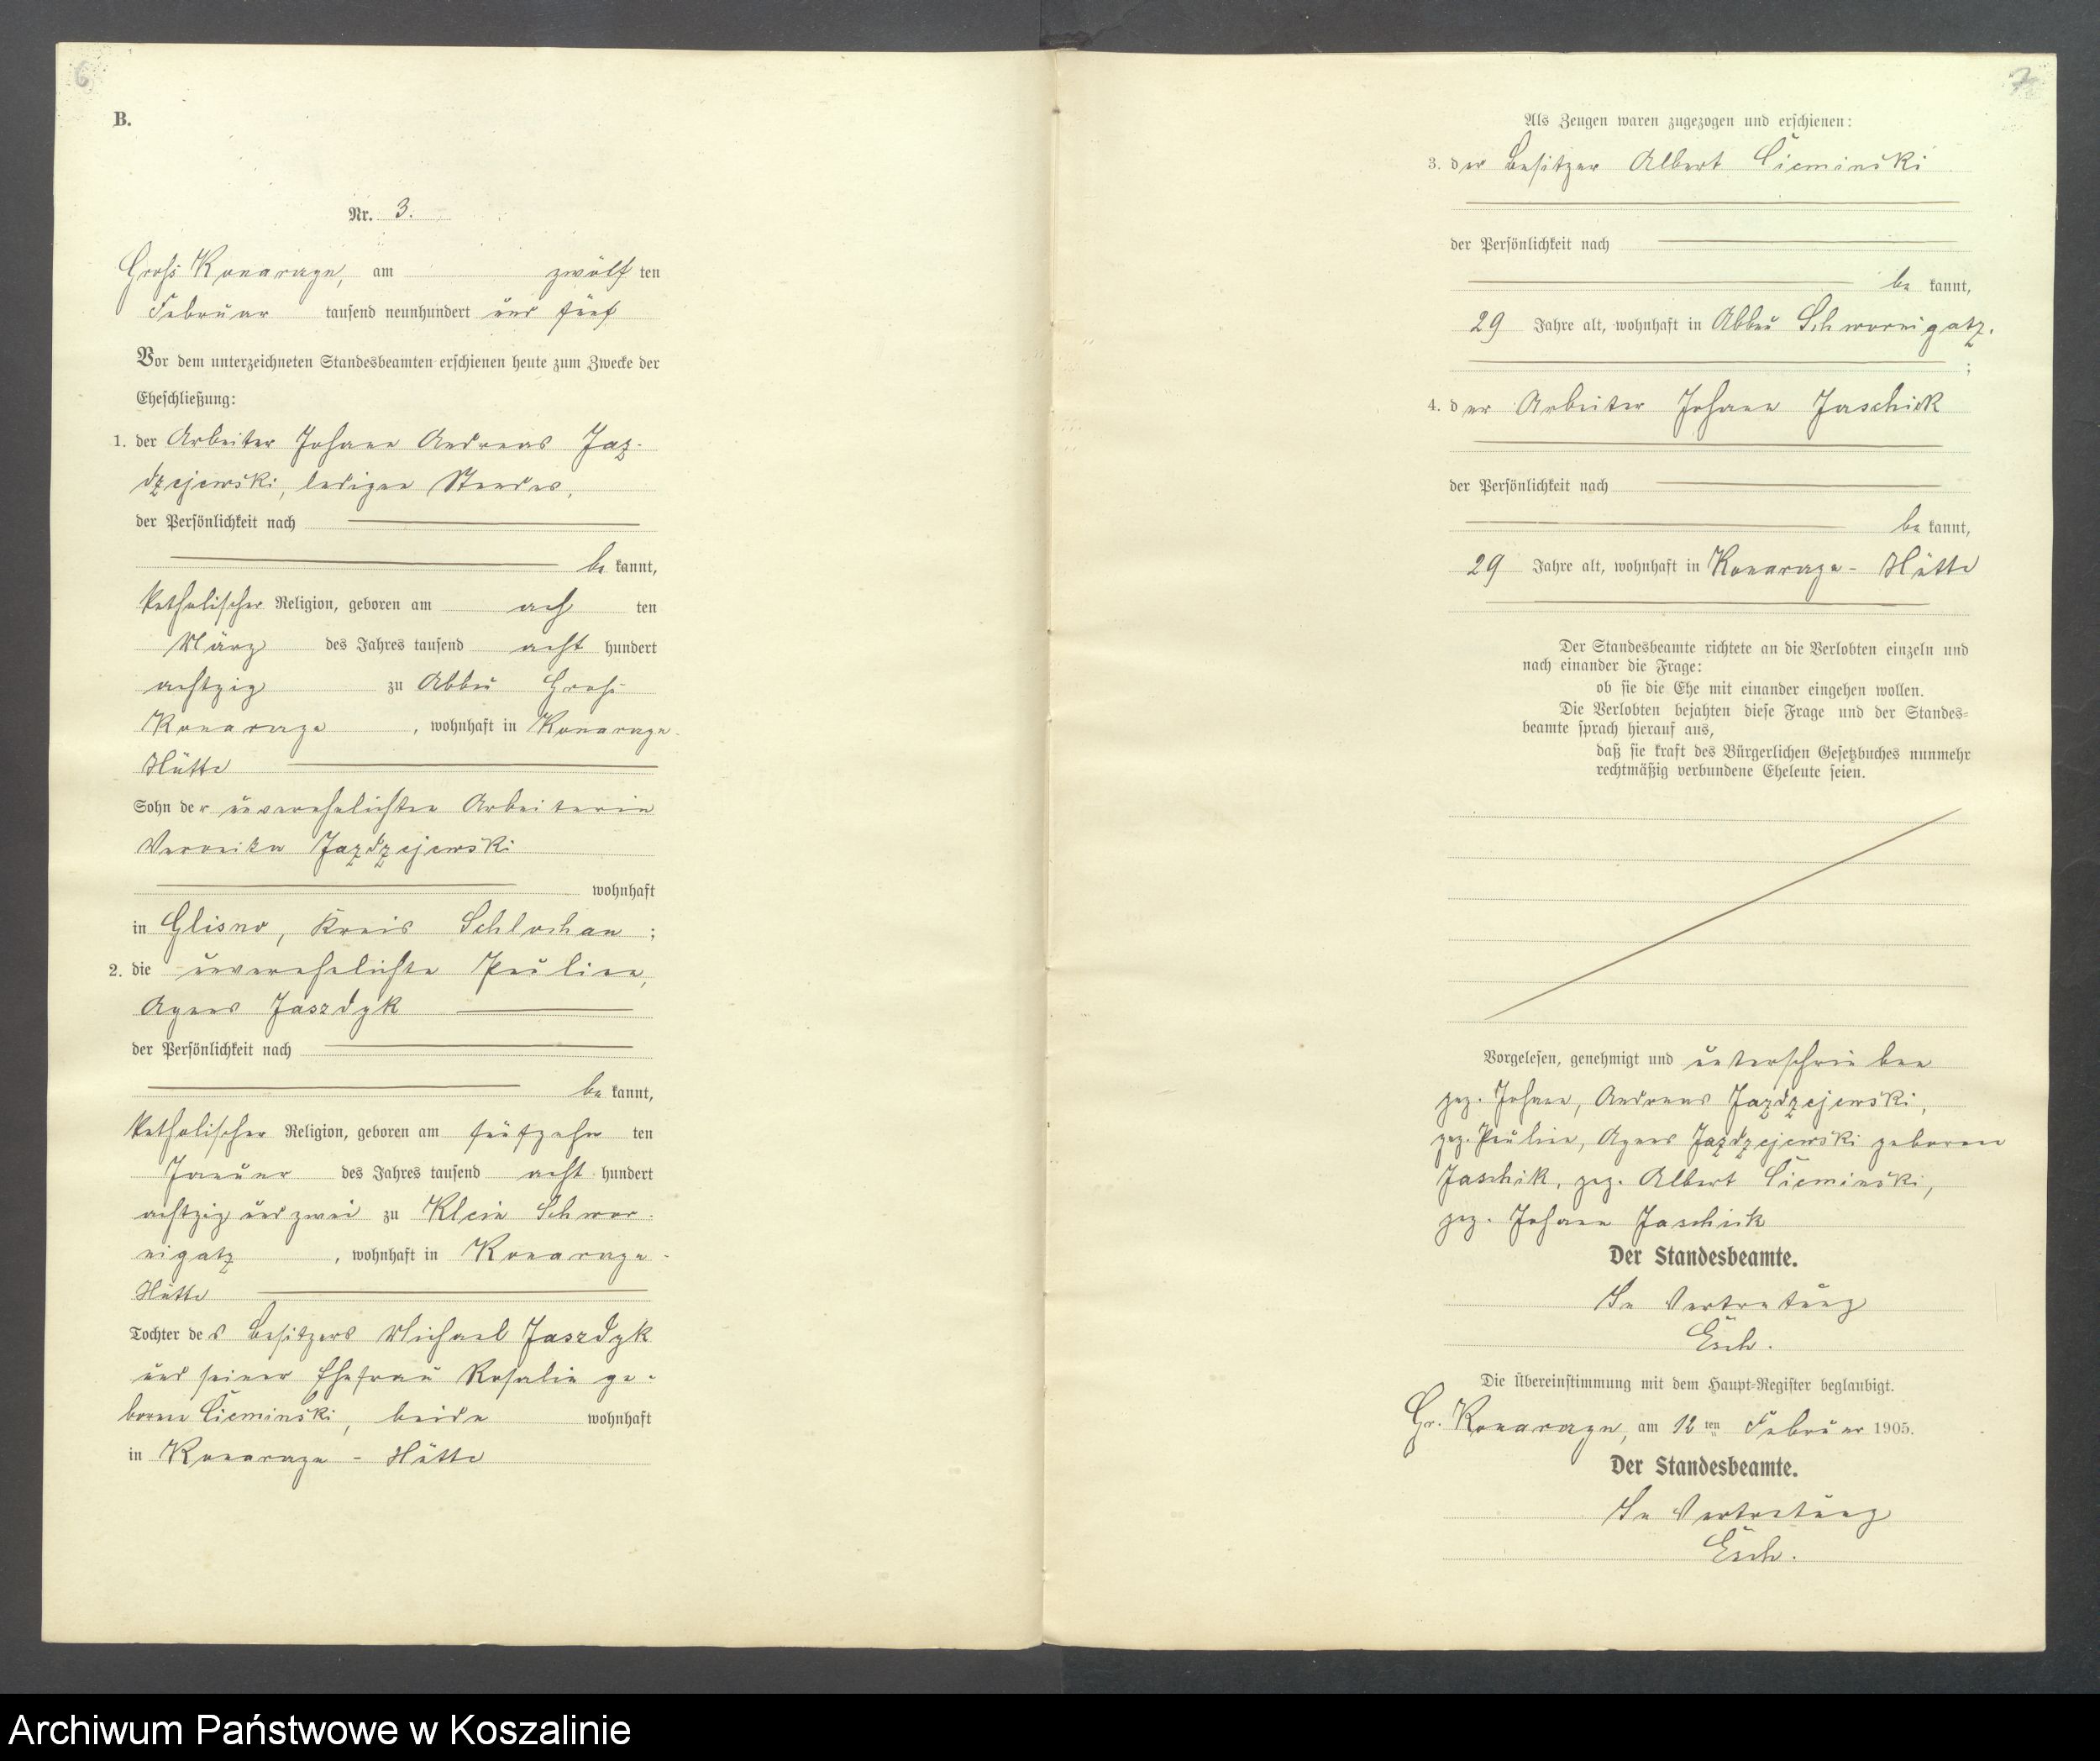 6
B.
Nr. 3.
Groß Konarzyn, am zwölf ten
Februar tausend neunhundert und fünf
Vor dem unterzeichneten Standesbeamten erschienen heute zum Zwecke der
Eheschließung:
1. der Arbeiter Johann Andreas Jaz-
dzejewski, ledigen Standes,
der Persönlichkeit nach
be kannt,
katholischer Religion, geboren am ach ten
März des Jahres tausend acht hundert
achtzig zu Abbau Groß
, wohnhaft in
Hütte
Sohn der unverehelichten Arbeiterin
Veronika Jazdzejewski
wohnhaft
in Glisno, Kreis Schlochau ;
2. die unverehelichte Pauline,
Agnes Jaszdyk
der Persönlichkeit nach
be kannt,
katholischer Religion, geboren am fünfzehn ten
Januar des Jahres tausend acht hundert
achtzig und zwei zu Klein Schwor-
nigatz , wohnhaft in
Hütte
Tochter des Besitzers Michael Jaszdyk
und seiner Ehefrau Rosalie ge-
borene Cieminski, beide wohnhaft
in - Hütte
7
Als Zeugen waren zugezogen und erschienen:
3. der Besitzer Albert Cieminski
der Persönlichkeit nach
be kannt,
29 Jahre alt, wohnhaft in Abbau Schwornigatz.
;
4. der Arbeiter Johann Jaschick
der Persönlichkeit nach
be kannt,
29 Jahre alt, wohnhaft in - Hütte
Der Standesbeamte richtete an die Verlobten einzeln und
nach einander die Frage:
ob sie die Ehe mit einander eingehen wollen.
Die Verlobten bejahten diese Frage und der Standes-
beamte sprach hierauf aus,
daß sie kraft des Bürgerlichen Gesetzbuches nunmehr
rechtmäßig verbundene Eheleute seien.
Vorgelesen, genehmigt und unterschrieben
gez. Johann, Andreas Jazdzejewski,
gez. Pauline, Agnes Jazdzejewski geborene
Jaschik, gez. Albert Cieminski,
gez. Johann Jaschik
Der Standesbeamte.
In Vertretung
Esch.
Die Übereinstimmung mit dem Haupt-Register beglaubigt.
Gr. Konarzyn, am 12 ten Februar 1905.
Der Standesbeamte.
In Vertretung
Esch.
Archiwum Państwowe w Koszalinie